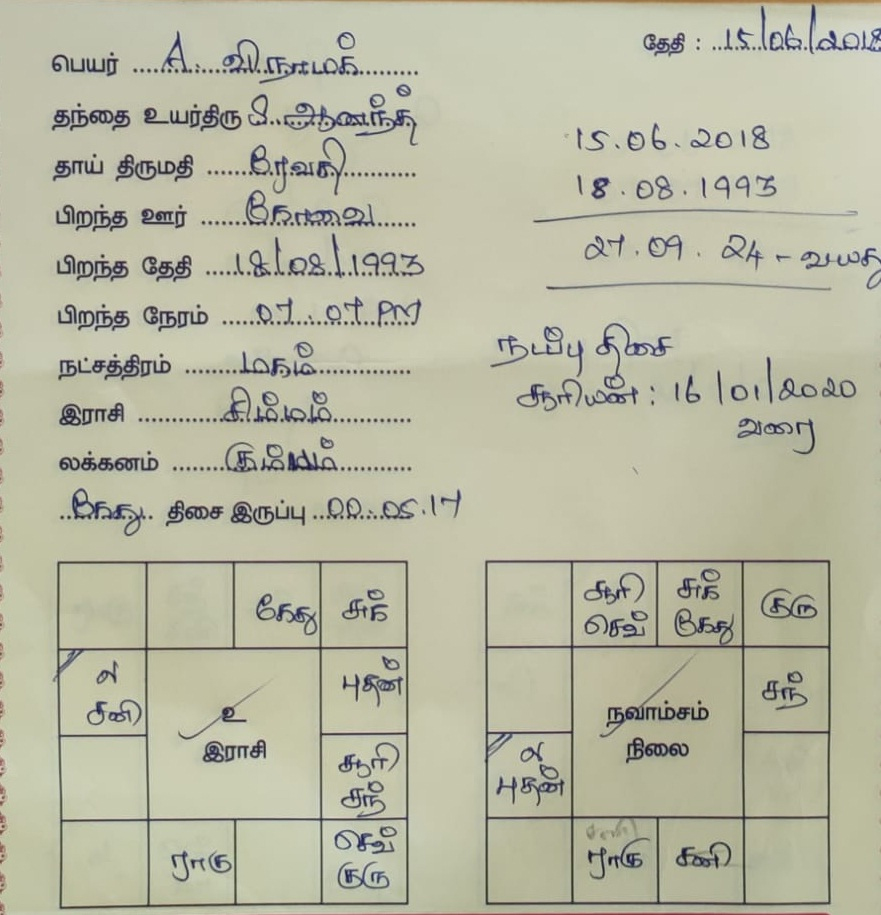 தேதி : 15/06/2018
பெயர் A. விநாமக்
தந்தை உயர்திரு S. ஆனந்த்
தாய் திருமதி ரேவதி
பிறந்த ஊர் கோவை
பிறந்த தேதி 18/08/1993
பிறந்த நேரம் 07.07 PM
நட்சத்திரம் மகம்
இராசி சிம்மம்
லக்கனம் கும்பம்
கேது திசை இருப்பு 00.05.17
15.06.2018
18.08.1993
27.09.24 - வயது
நடப்பு திசை
சூரியன் : 16/01/2020
வரை
கேது சுக்
ல
சனி
புதன்
உ
இராசி
சூரி
சந்
ராகு
செவ்
குரு
சூரி
செவ்
சுக்
கேது
குரு
சந்
நவாம்சம்
நிலை
ல
புதன்
ராகு
சனி